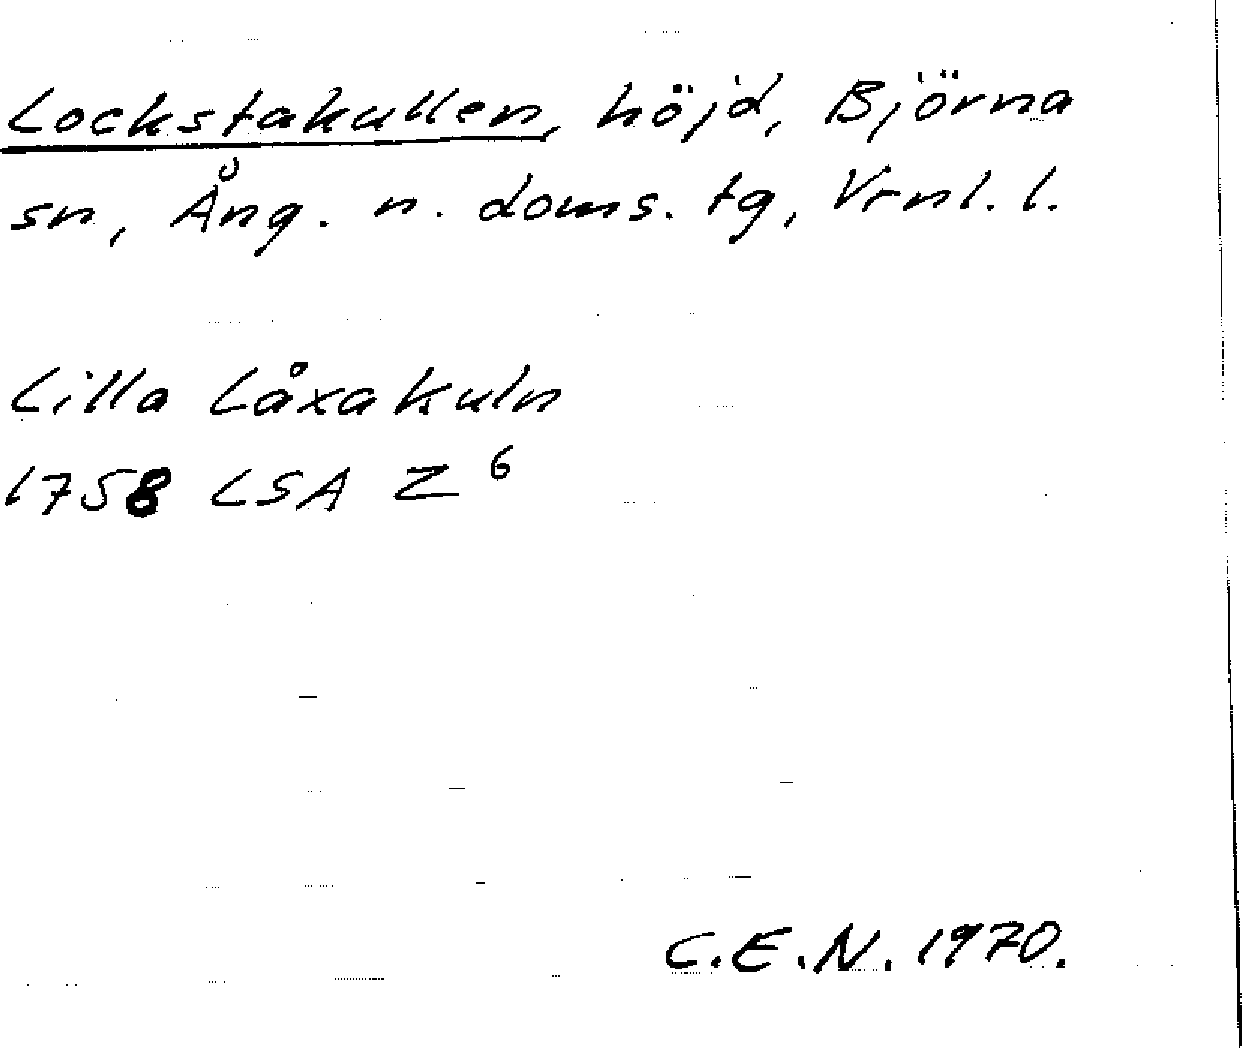 Lockstakullen, höjd, Björna
sn, Ång. n. doms. tg, Vrnl. l.
Lilla Låxakuln
1758 LSA Z 6
C.E.N. 1970.